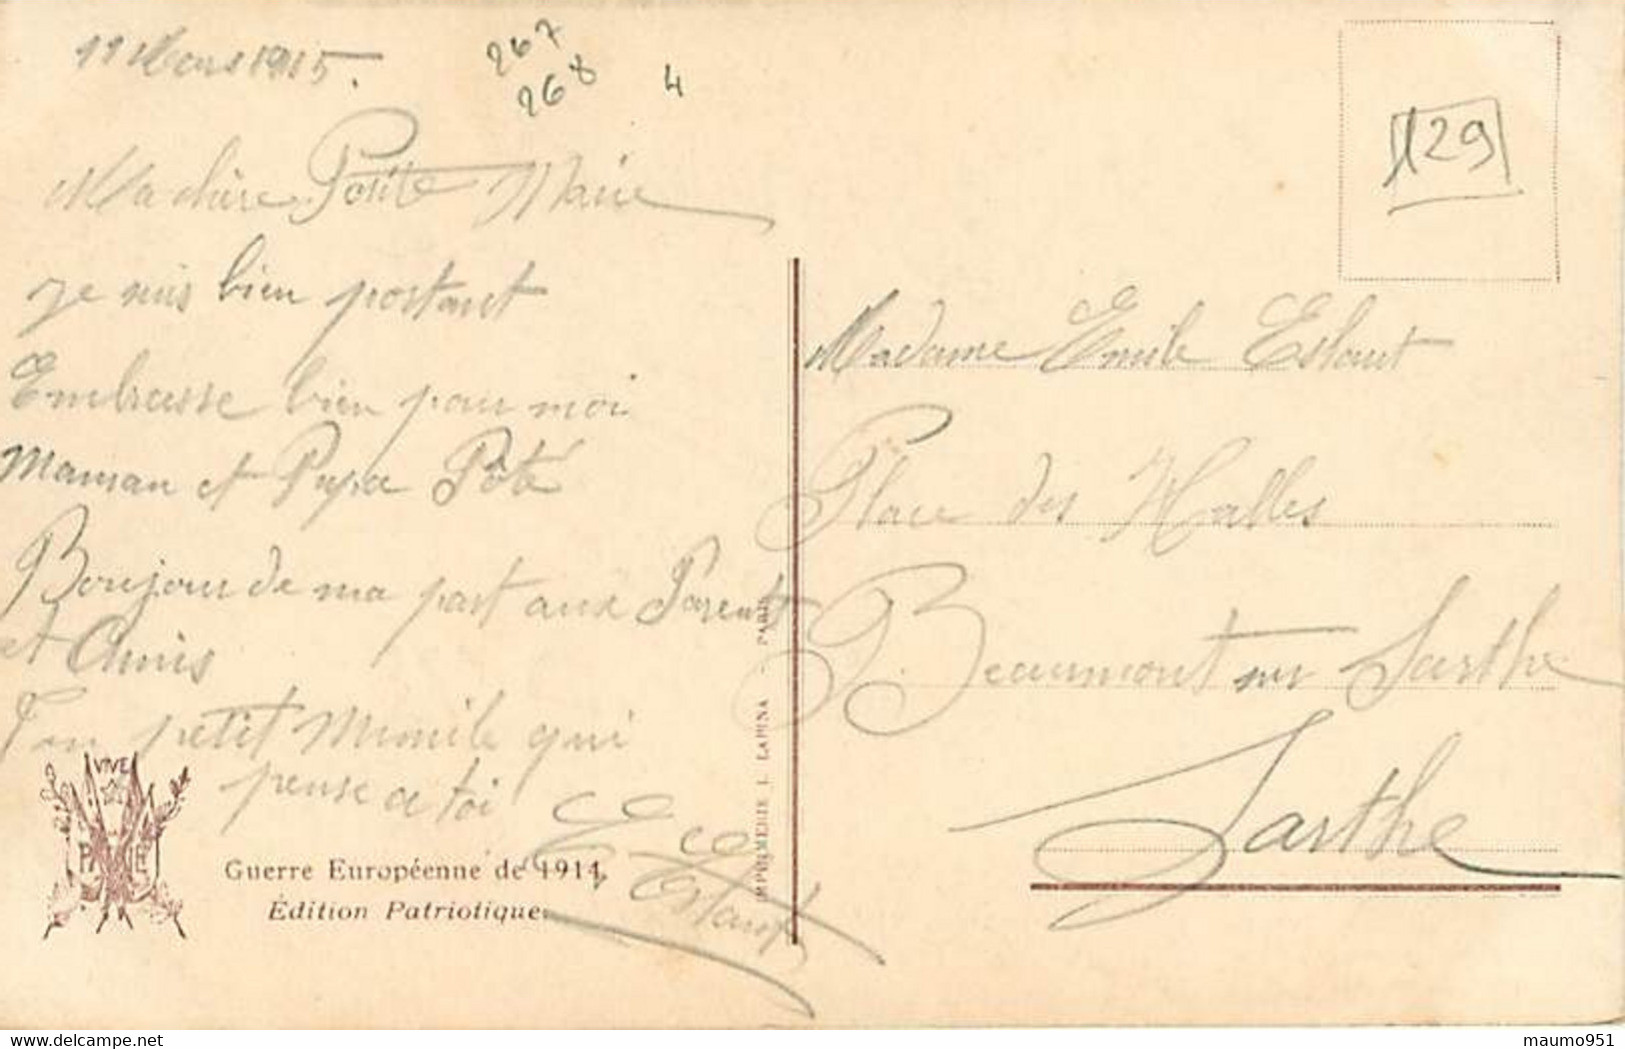 11 Mars 1915.
267
268
4
129
Ma chère Potite Marie
je suis bien portant
Embrasse bien pour moi
Maman et Papa Pôté
Bonjour de ma part aux Parents
et Amis
Ton petit Mimile qui
pense a toi
E Eslaut
Madame Emile Eslaut
Place des Halles
Beaumont sur Sarthe
Sarthe
VIVE
Guerre Européenne de 1914
Édition Patriotique
IMPRIMERIE I. LAPINA - PARIS
maumo951